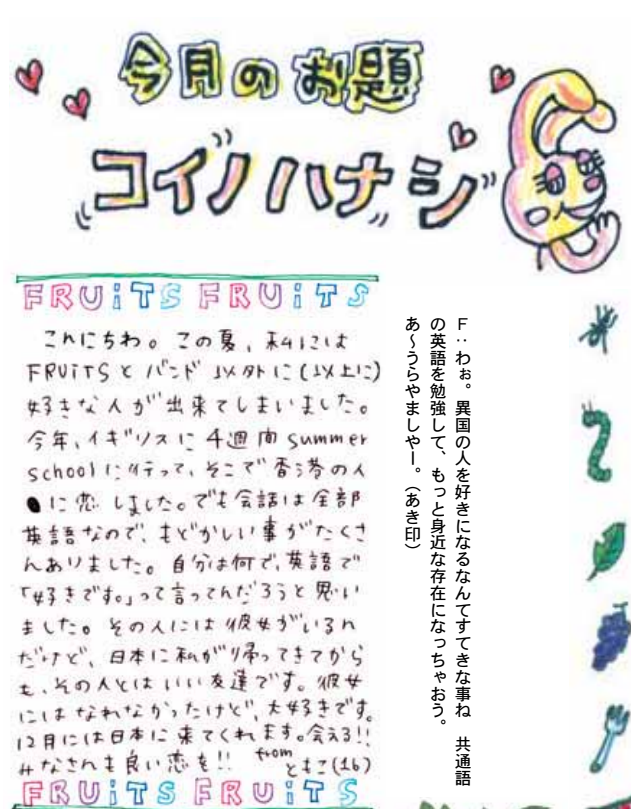 今月のお題
コイノハナシ"
FRUiTS FRUiTS
こんにちわ。この夏、私には
FRUiTSとバンド以外に(以上に)
好きな人が出来てしまいました。
今年、イギリスに4週間summer
schoolに行って、そこで香港の人
に恋しました。でも会話は全部
英語なので、もどかしい事がたくさ
んありました。自分は何で、英語で
「好きです。」って言ってんだろうと思い
ました。その人には彼女がいるん
だけど、日本に私が帰ってきてから
も、その人とはいい友達です。彼女
にはなれなかったけど、大好きです。
12月には日本に来てくれます。会える!!
みなさんも良い恋を!! from ともこ(16)
FRUiTS FRUiTS
F:わぉ。異国の人を好きになるなんてすてきな事ね 共通語
の英語を勉強して、もっと身近な存在になっちゃおう。
あ〜うらやましやー。(あき印)